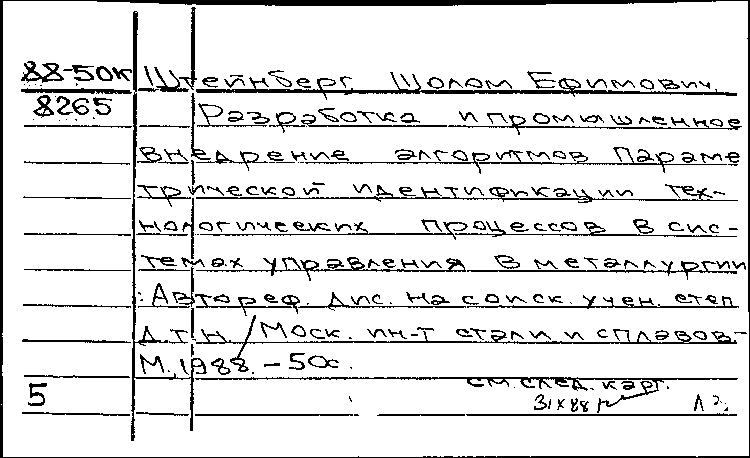 88-50к Штейнберг Шолом Ефимович.
8265 Разработка и промышленное
внедрение алгоритмов параме
трической идентификации тех-
нологических процессов в сис-
темах управления в металлургии
: Автореф. дис. на соиск. учен. степ
д.т.н. / Моск. ин-т стали и сплавов.-
М., 1988. - 50с.
5 см. след. карт.
31 X 88